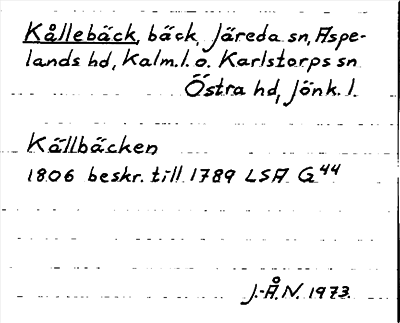 Kållebäck, bäck, Järeda sn, Aspe-
lands hd, Kalm.l. o. Karlstorps sn
Östra hd, Jönk. l.
Källbäcken
1806 beskr. till 1789 LSA G44
J.-Å.N. 1973